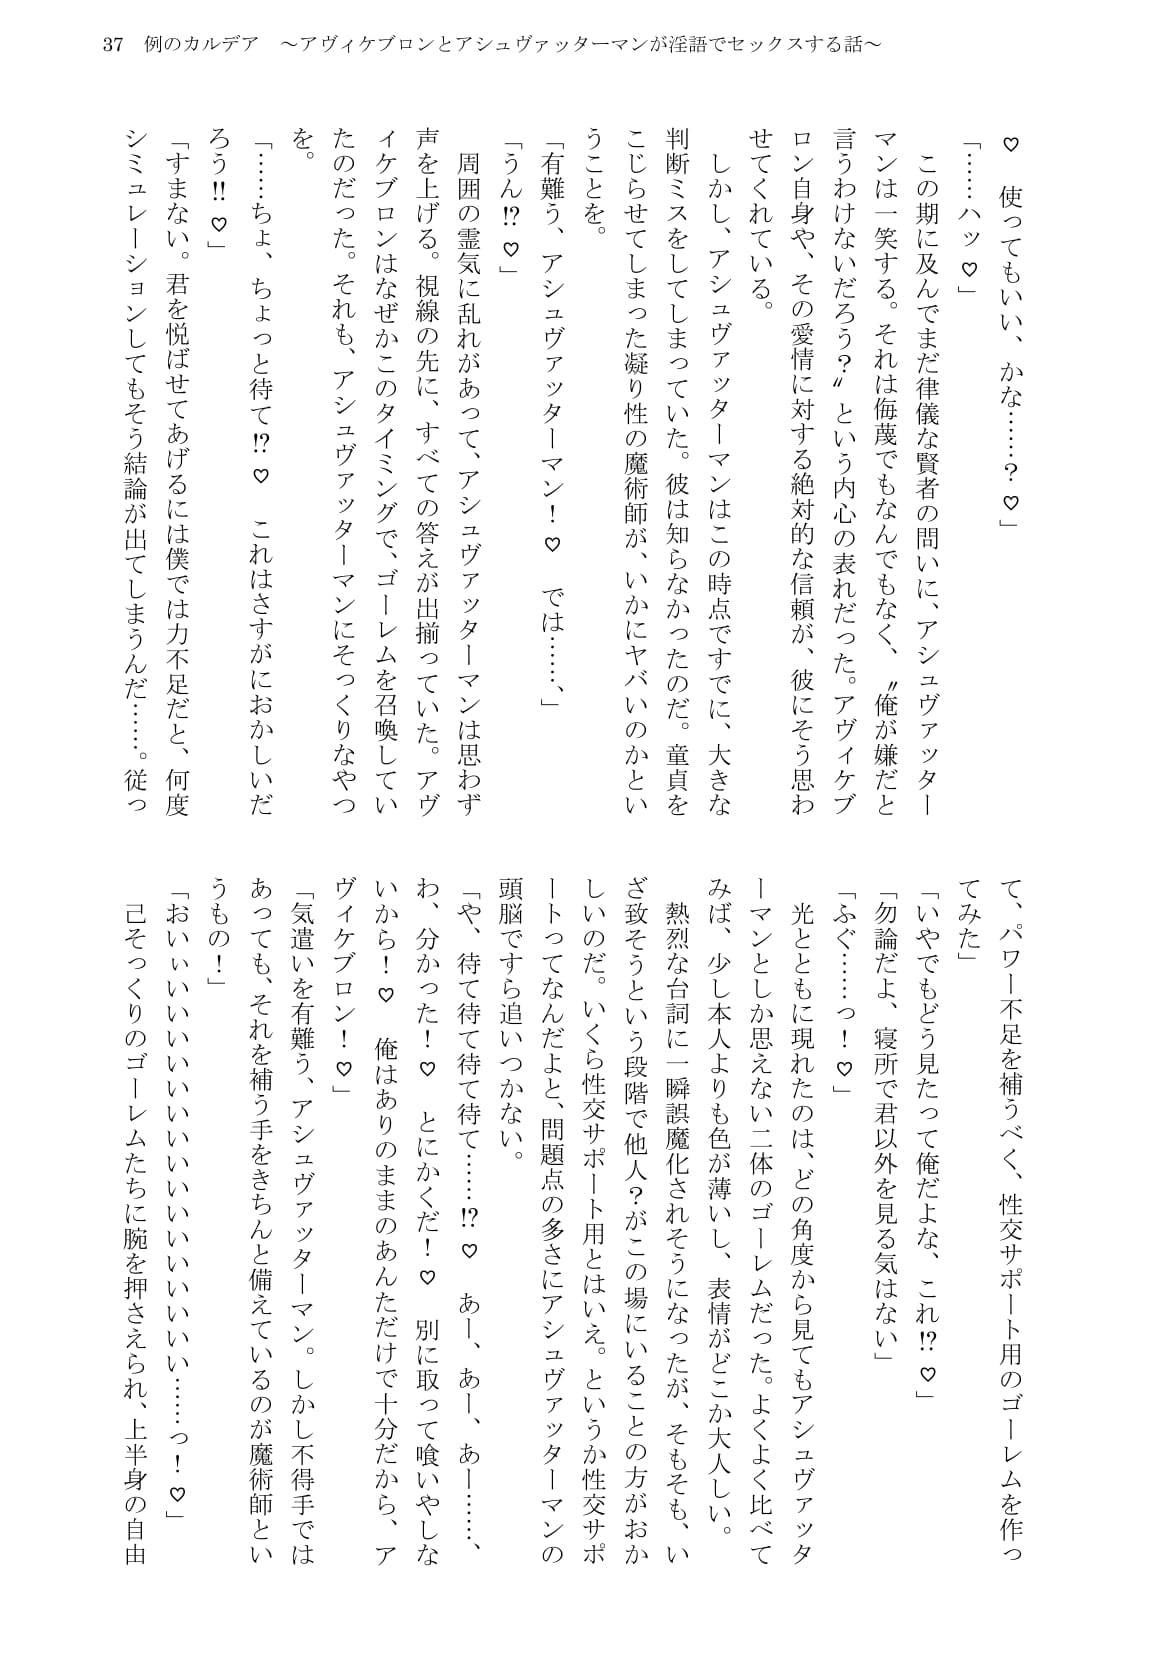 37 例のカルデア ～アヴィケブロンとアシュヴァッターマンが淫語でセックスする話～
♡ 使ってもいい、かな……？♡」
「……ハッ♡」
この期に及んでまだ律儀な賢者の問いに、アシュヴァッター
マンは一笑する。それは侮蔑でもなんでもなく、〝俺が嫌だと
言うわけないだろう？〟という内心の表れだった。アヴィケブ
ロン自身や、その愛情に対する絶対的な信頼が、彼にそう思わ
せてくれている。
しかし、アシュヴァッターマンはこの時点ですでに、大きな
判断ミスをしてしまっていた。彼は知らなかったのだ。童貞を
こじらせてしまった凝り性の魔術師が、いかにヤバいのかとい
うことを。
「有難う、アシュヴァッターマン！♡ では……、」
「うん⁉♡」
周囲の霊気に乱れがあって、アシュヴァッターマンは思わず
声を上げる。視線の先に、すべての答えが出揃っていた。アヴ
ィケブロンはなぜかこのタイミングで、ゴーレムを召喚してい
たのだった。それも、アシュヴァッターマンにそっくりなやつ
を。
「……ちょ、ちょっと待て⁉♡ これはさすがにおかしいだ
ろう‼♡」
「すまない。君を悦ばせてあげるには僕では力不足だと、何度
シミュレーションしてもそう結論が出てしまうんだ……。従っ
て、パワー不足を補うべく、性交サポート用のゴーレムを作っ
てみた」
「いやでもどう見たって俺だよな、これ⁉♡」
「勿論だよ、寝所で君以外を見る気はない」
「ふぐ……っ！♡」
光とともに現れたのは、どの角度から見てもアシュヴァッタ
ーマンとしか思えない二体のゴーレムだった。よくよく比べて
みば、少し本人よりも色が薄いし、表情がどこか大人しい。
熱烈な台詞に一瞬誤魔化されそうになったが、そもそも、い
ざ致そうという段階で他人？がこの場にいることの方がおか
しいのだ。いくら性交サポート用とはいえ。というか性交サポ
ートってなんだよと、問題点の多さにアシュヴァッターマンの
頭脳ですら追いつかない。
「や、待て待て待て待て……⁉♡ あー、あー、あー……、
わ、分かった！♡ とにかくだ！♡ 別に取って喰いやしな
いから！♡ 俺はありのままのあんただけで十分だから、ア
ヴィケブロン！♡」
「気遣いを有難う、アシュヴァッターマン。しかし不得手では
あっても、それを補う手をきちんと備えているのが魔術師とい
うもの！」
「おいぃいいいいいいいいいいいいいいいい……っ！♡」
己そっくりのゴーレムたちに腕を押さえられ、上半身の自由